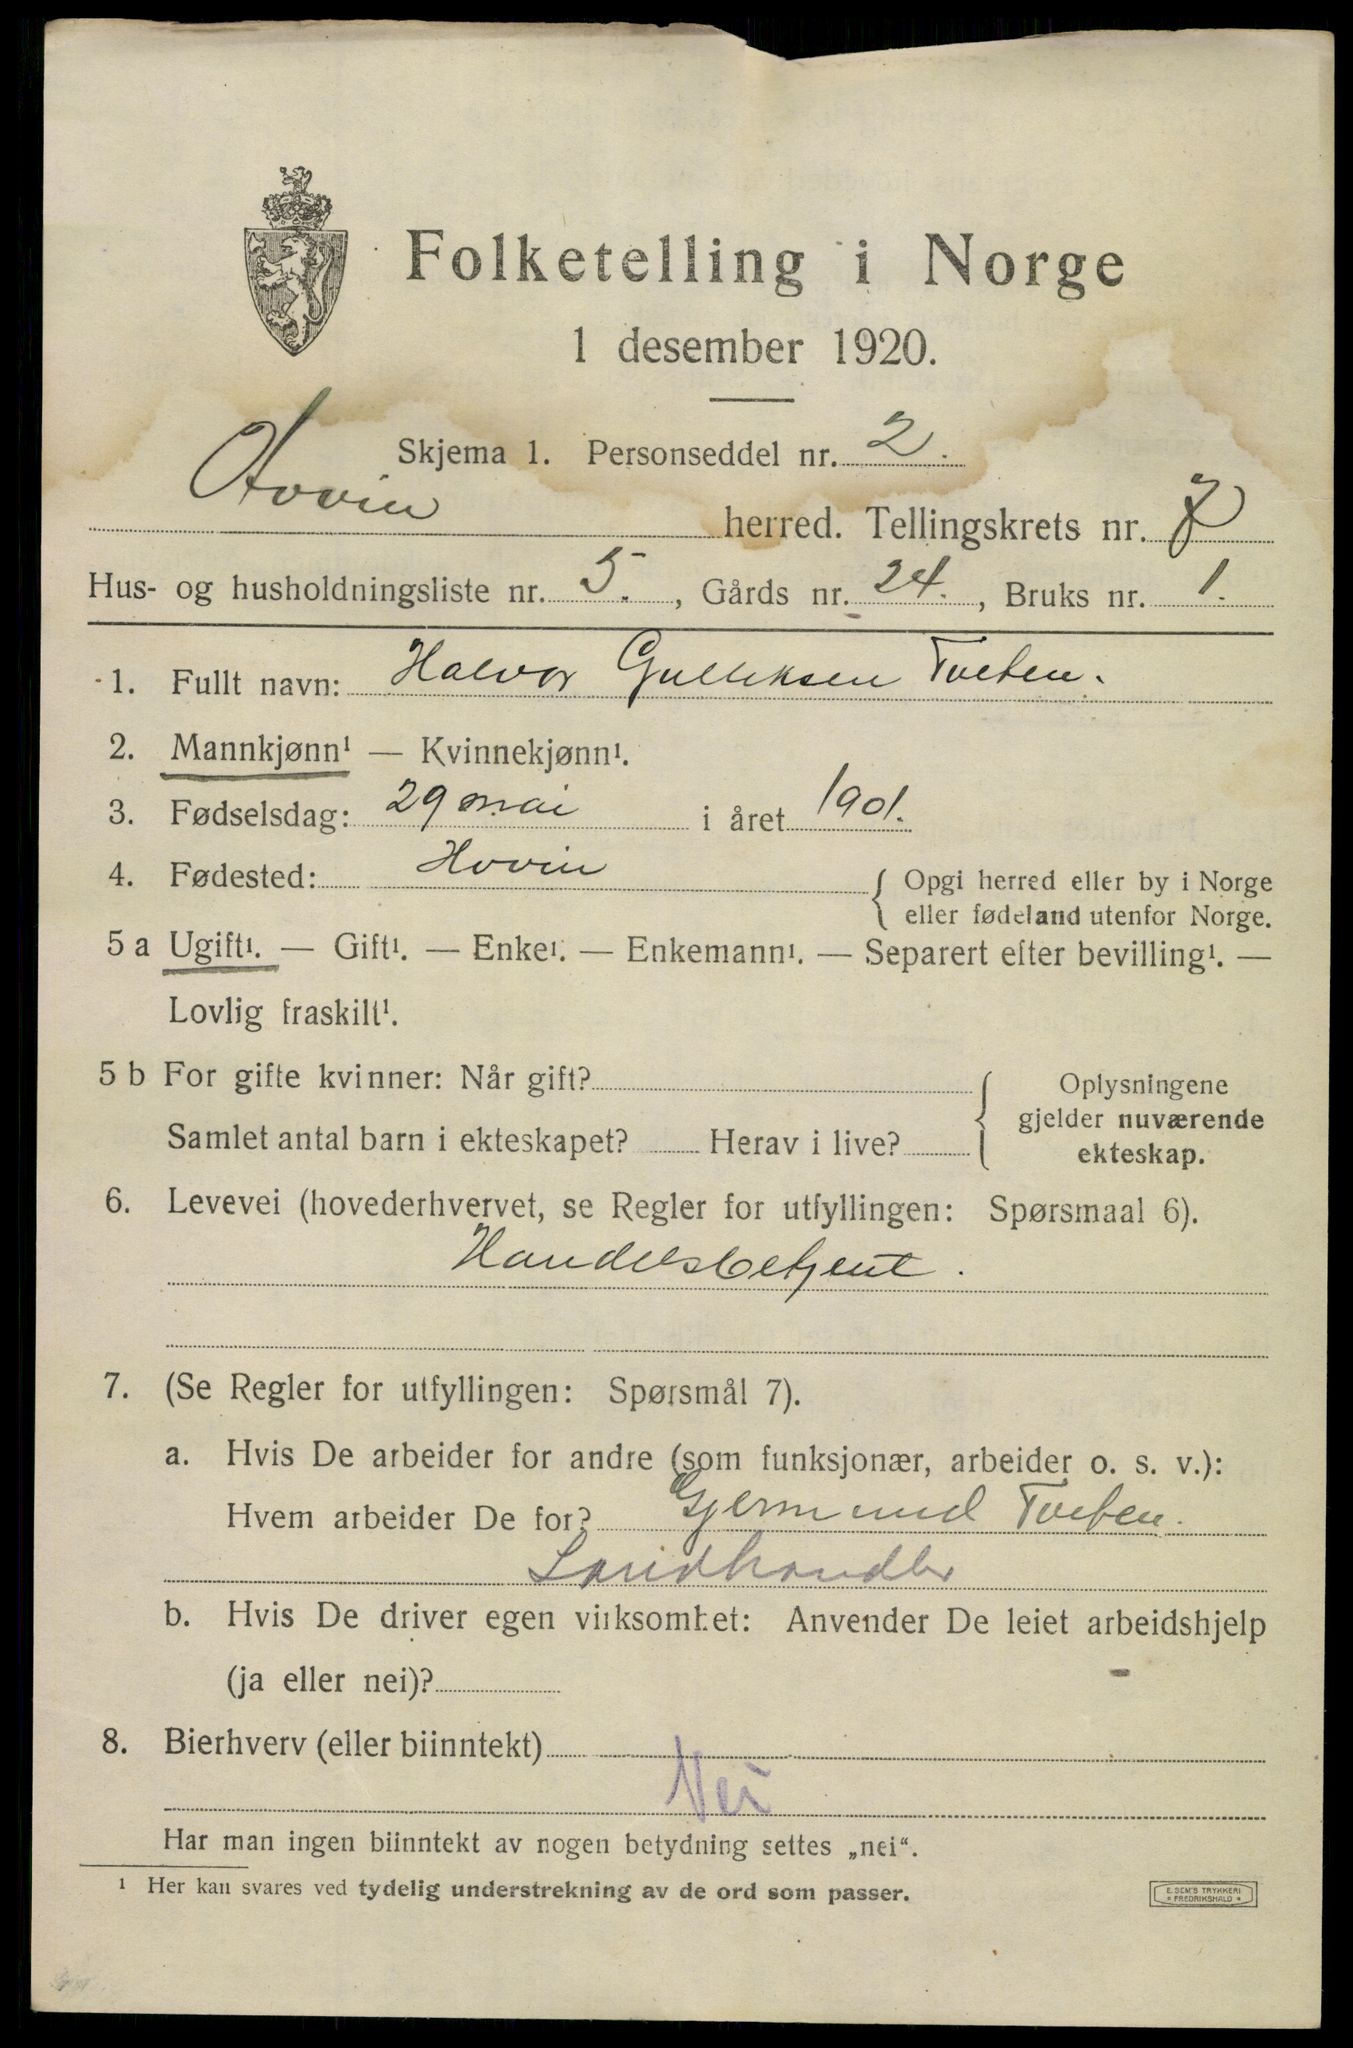 Folketelling i Norge
1 desember 1920.
Skjema 1. Personseddel nr. 2.
Hovin herred. Tellingskrets nr. 7
Hus- og husholdningsliste nr. 5. , Gårds nr. 24. , Bruks nr. 1.
1. Fullt navn: Halvor Gulliksen Tveten.
2. Mannkjønn¹ — Kvinnekjønn¹.
3. Fødselsdag: 29 mai i året 1901.
4. Fødested: Hovin { Opgi herred eller by i Norge
eller fødeland utenfor Norge.
5 a Ugift¹. — Gift¹. — Enke¹. — Enkemann¹. — Separert efter bevilling¹. —
Lovlig fraskilt¹.
5 b For gifte kvinner: Når gift? { Oplysningene
gjelder nuværende
Samlet antal barn i ekteskapet? Herav i live? ekteskap.
6. Levevei (hovederhvervet, se Regler for utfyllingen: Spørsmaal 6).
Handelsbetjent.
7. (Se Regler for utfyllingen: Spørsmål 7).
a. Hvis De arbeider for andre (som funksjonær, arbeider o. s. v.):
Hvem arbeider De for? Gjermund Tveten.
Landhandler
b. Hvis De driver egen virksomhet: Anvender De leiet arbeidshjelp
(ja eller nei)?
8. Bierhverv (eller biinntekt)
Nei
Har man ingen biinntekt av nogen betydning settes „nei“.
¹ Her kan svares ved tydelig understrekning av de ord som passer.
E. SEM'S TRYKKERI
* FREDRIKSHALD *